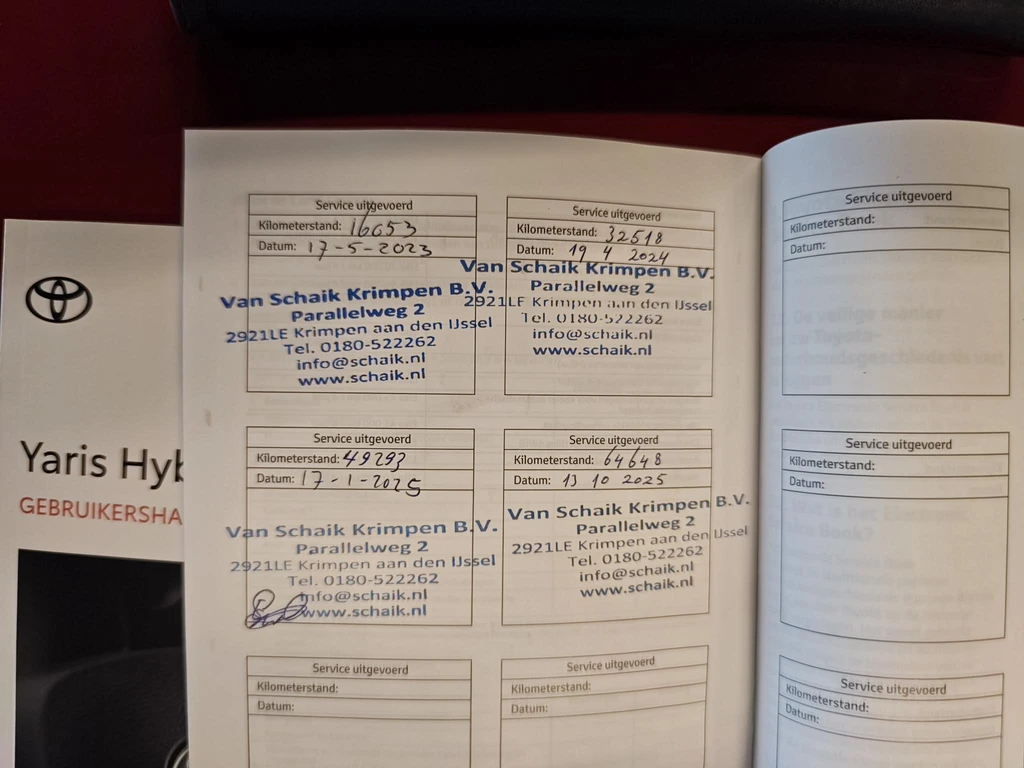 Service uitgevoerd
Kilometerstand: 16653
Datum: 17-5-2023
Van Schaik Krimpen B.V.
Parallelweg 2
2921LE Krimpen aan den IJssel
Tel. 0180-522262
info@schaik.nl
www.schaik.nl
Service uitgevoerd
Kilometerstand: 32518
Datum: 19 4 2024
Van Schaik Krimpen B.V.
Parallelweg 2
2921LE Krimpen aan den IJssel
Tel. 0180-522262
info@schaik.nl
www.schaik.nl
Service uitgevoerd
Kilometerstand: 49293
Datum: 17-1-2025
Van Schaik Krimpen B.V.
Parallelweg 2
2921LE Krimpen aan den IJssel
Tel. 0180-522262
info@schaik.nl
www.schaik.nl
Service uitgevoerd
Kilometerstand: 64648
Datum: 13 10 2025
Van Schaik Krimpen B.V.
Parallelweg 2
2921LE Krimpen aan den IJssel
Tel. 0180-522262
info@schaik.nl
www.schaik.nl
Service uitgevoerd
Kilometerstand:
Datum:
Service uitgevoerd
Kilometerstand:
Datum:
Service uitgevoerd
Kilometerstand:
Datum:
Service uitgevoerd
Kilometerstand:
Datum:
Service uitgevoerd
Kilometerstand:
Datum:
Yaris Hyb
GEBRUIKERSHA